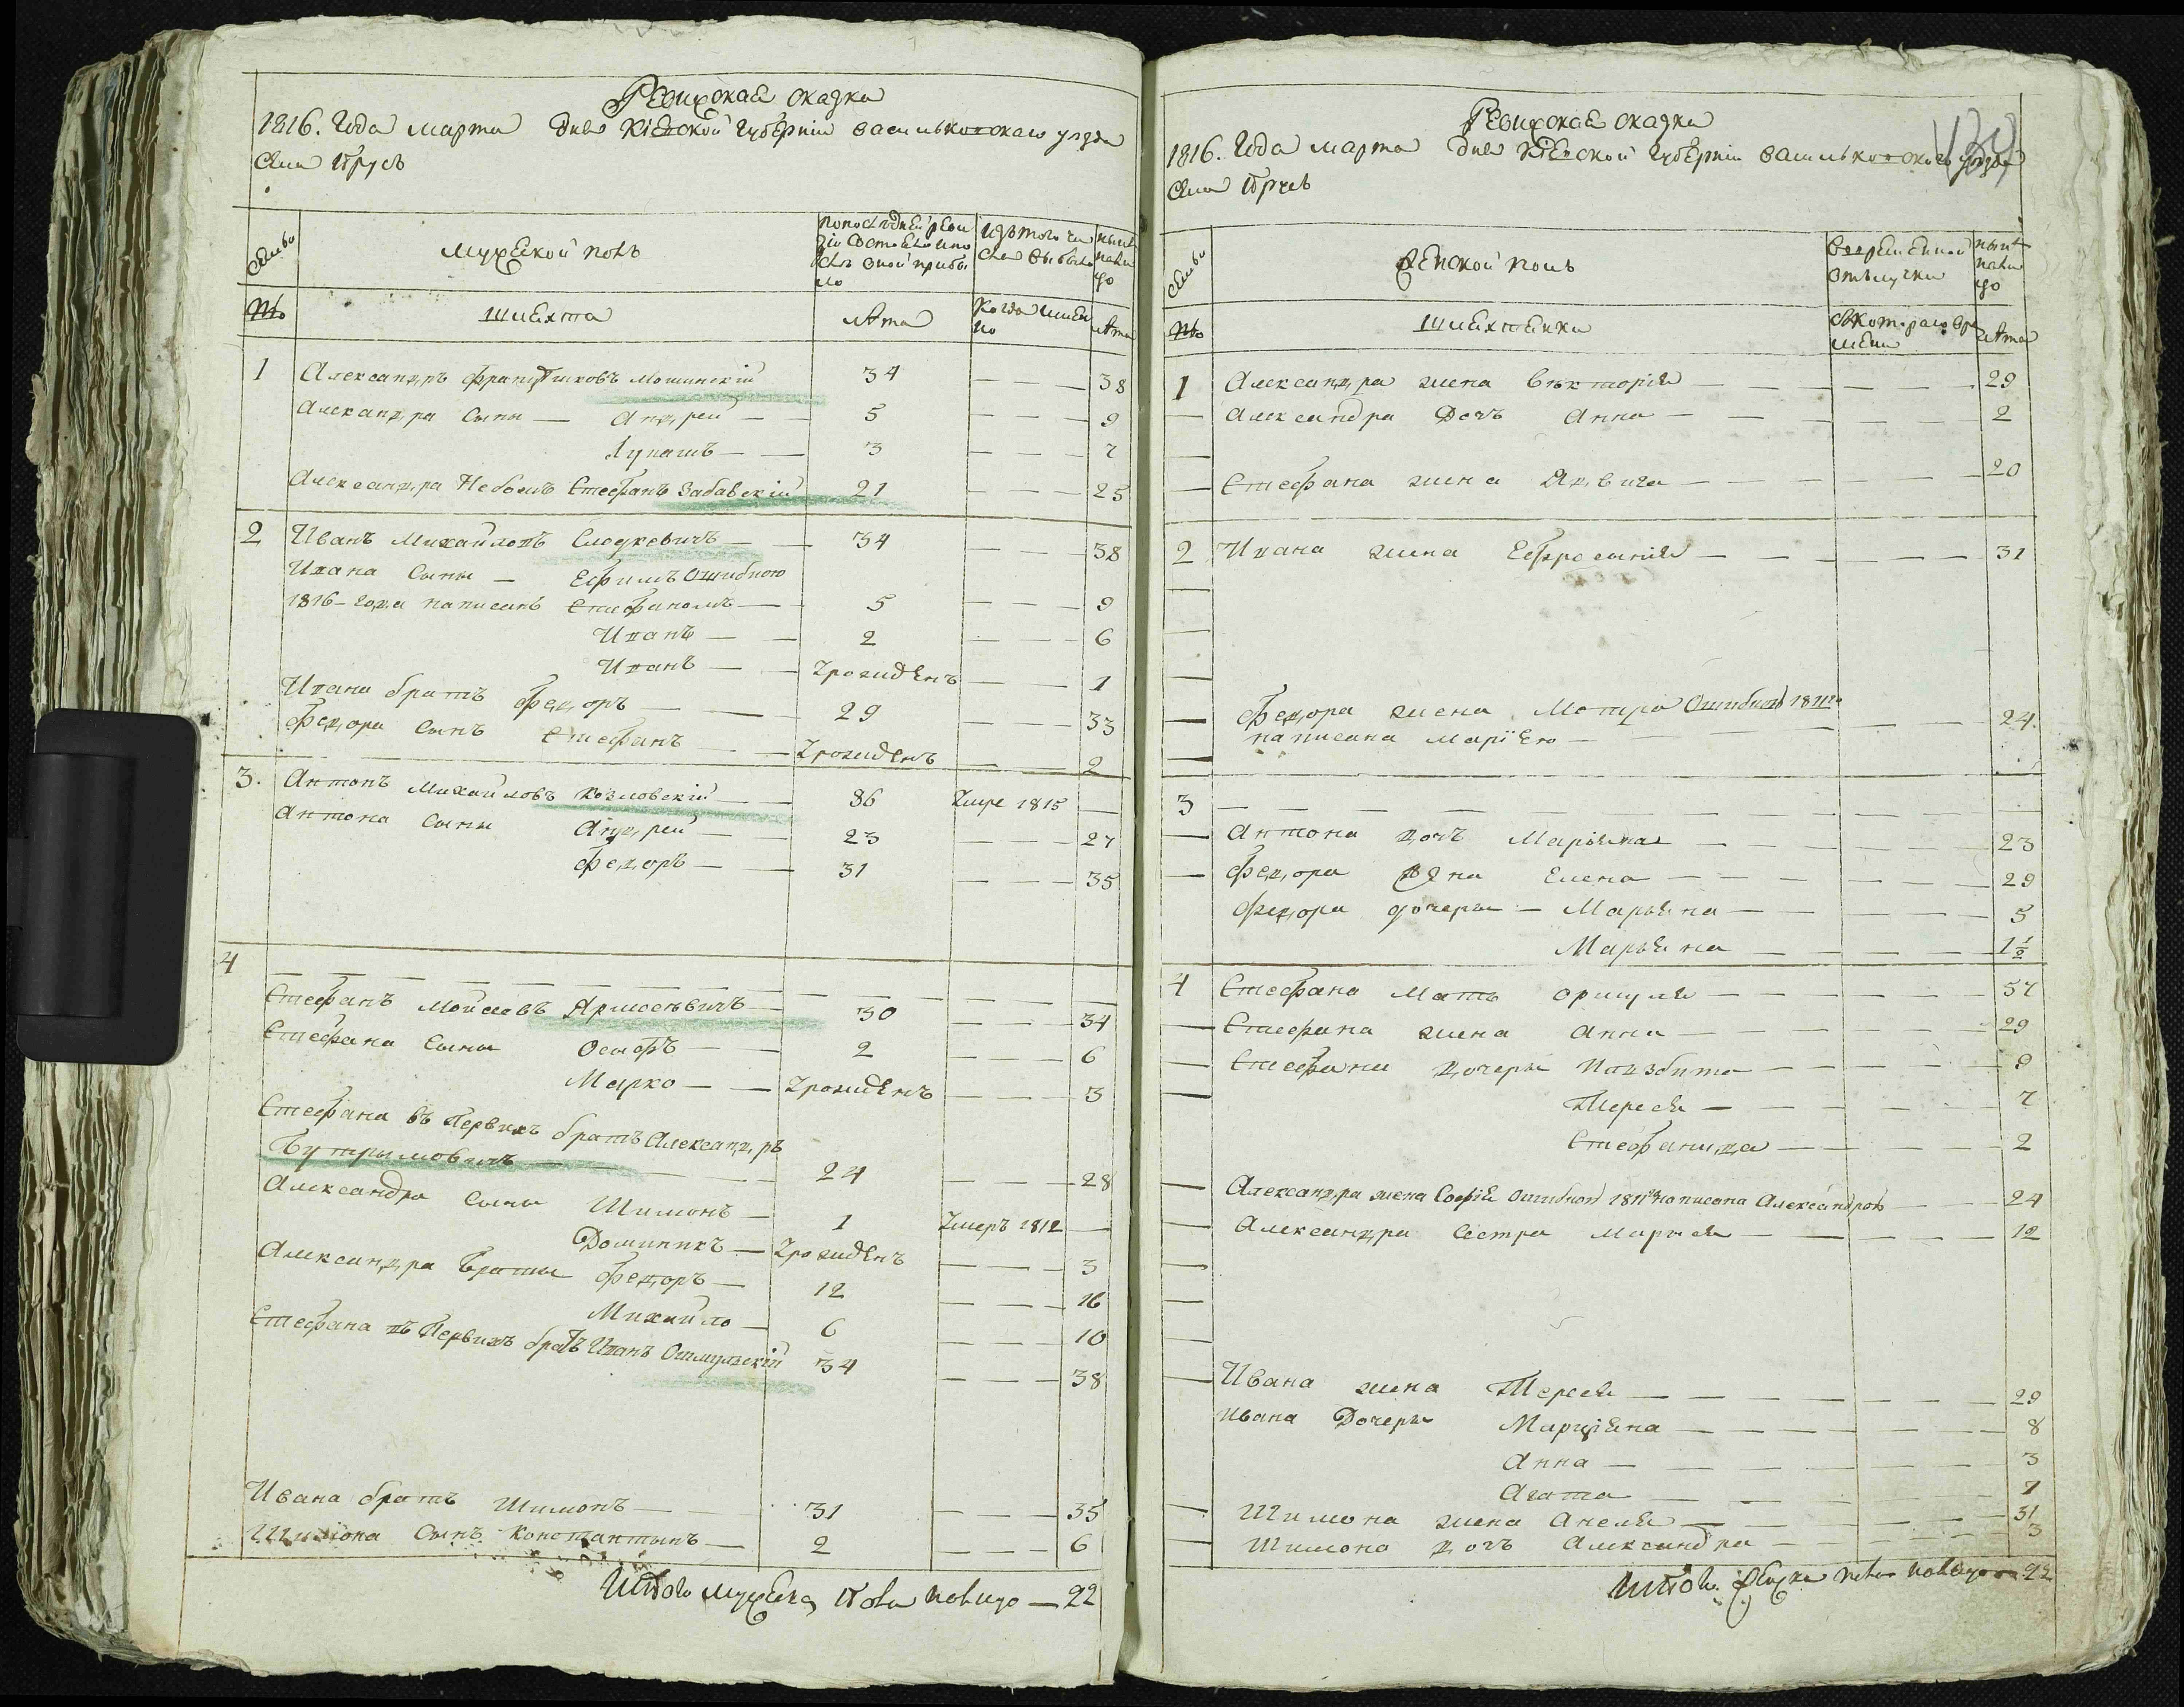 Ревизская сказка
1816. Года марта дня Кіевской Губерніи Васильковскаго уезда
села Прусъ
Семьи
Мужеской полъ
По последней ревизіи состояло и после оной прибыло
Изъ того числа выбыло
Ныне налицо
№
Шляхта
лета
Когда имянно
лета
1 Александръ Францишковъ Мошинскій 34 — — — 38
Александра сыны — Андрей — 5 — — — 9
Лукашъ — — 3 — — — 7
Александра Небожъ Стефанъ Забавскій 21 — — — 25
2 Иванъ Михайловъ Следкевичъ — 34 — — — 38
Ивана сыны — Ефимъ Ошибкою
1816 года написанъ Стефаномъ — 5 — — — 9
Иванъ — — 2 — — — 6
Иванъ — — Зрожденъ — — — 1
Ивана братъ Федоръ — — 29 — — — 33
Федора сынъ Стефанъ — — Зрожденъ — — 2
3. Антонъ Михайловъ Козловскій — 86 Умре 1815 —
Антона сыны Андрей — 23 — — — 27
Федоръ — — 31 — — — 35
4 — — — — — — — — — —
Стефанъ Мойсеевъ Ярмосевичъ — 30 — — — 34
Стефана сыны Осыфъ — — 2 — — — 6
Марко — — Зрожденъ — — — 3
Стефана въ Первихъ братъ Александръ
Бутрымовичъ — — — 24 — — — 28
Александра сыны Шимонъ — 1 Умеръ 1812 —
Доминикъ — Зрожденъ — — — 3
Александра Браты Федоръ — 12 — — — 16
Михайло — 6 — — — 10
Стефана въ Первихъ братъ Иванъ Ошмульскій 34 — — — 38
Ивана братъ Шимонъ — — 31 — — — 35
Шимона сынъ Константынъ — 2 — — — 6
Итого мужеска пола налицо — 22
Ревизская сказка
1816. Года марта дня Кіевской Губерніи Васильковскаго уезда
села Прусъ
Семьи
Женской полъ
Во временной отлучки
Ныне налицо
№
Шляхтенки
Съ котораго времени
лета
1 Александра жена Викторія — — — — 29
Александра дочъ Анна — — — — 2
Стефана жена Ядвига — — — — 20
2 Ивана жена Ефросинія — — — — 31
Федора жена Мотря Ошибкой 1811го
написана Маріею — — — — 24
3 — — — — — — — —
Антона дочъ Марьяна — — — — 23
Федора жена Елена — — — — 29
Федора дочери — Марьяна — — — — 5
Марьяна — — — 1½
4 Стефана Мать Оршуля — — — — 57
Стефана жена Анна — — — — 29
Стефана дочери — — — 9
Тереся — — — — 7
Стефанида — — — 2
Александра жена Софія Ошибкой 1811го написана Александрою — 24
Александра Сестра Марыся — — — — 12
Ивана жена Тереся — — — — 29
Ивана Дочери Марціяна — — — — 8
Анна — — — — 3
Агата — — — — 1
Шимона жена Анеля — — — 31
Шимона дочъ Александра — — — 3
Итого женска пола налицо — 22